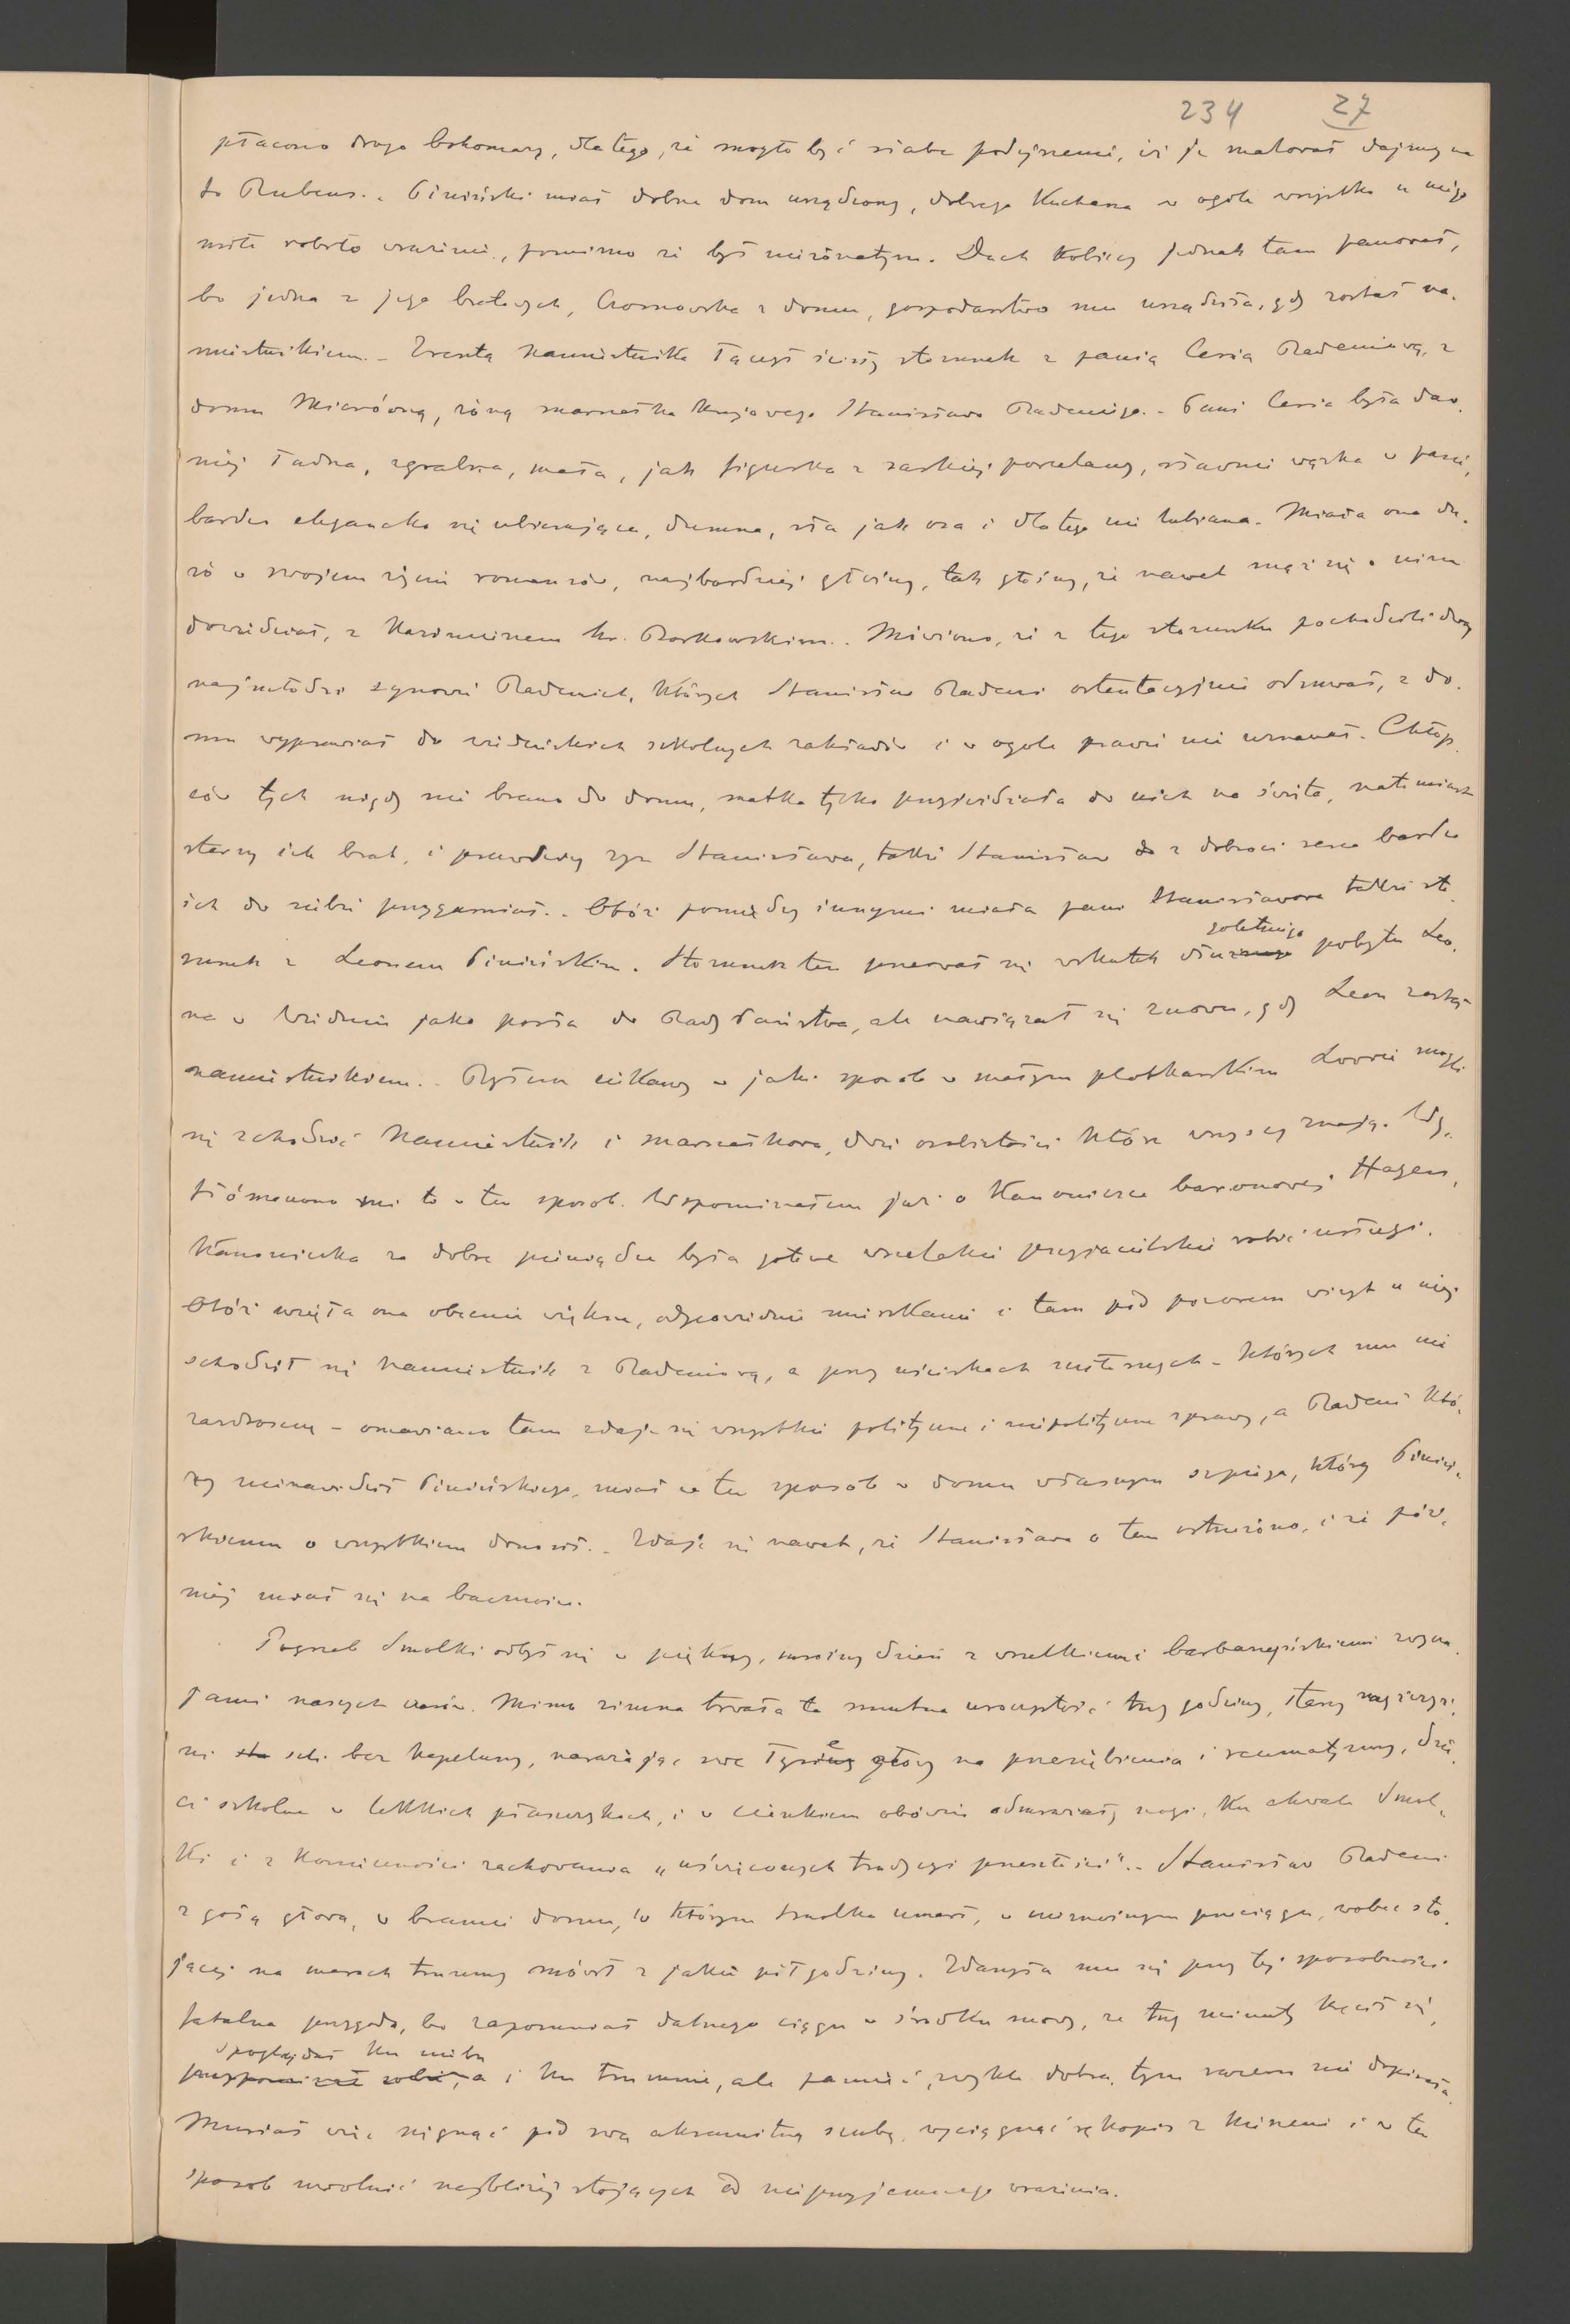 234 27
płacono drogo bohomazy, dlatego, że mogło być słabe podejrzenie, iż je malował dajmy na
to Rubens.. Piniński miał dobrze dom urządzony, dobrego Kucharza w ogóle wszystko u niego
miłe robiło wrażenie, pomimo że był nieżonatym. Duch Kobiecy jednak tam panował,
bo jedna z jego bratowych, Czosnowska z domu, gospodarstwo mu urządziła, gdy został na-
miestnikiem. - Zresztą Namiestnika łączył ścisły stosunek z panią Cesią Badeniową, z
domu Mierówną, żoną marszałka Krajowego Stanisława Badeniego. - Pani Cesia była daw-
niej ładna, zgrabna, mała, jak figurka z saskiej porcelany, sławnie wązka w pasie,
bardzo elegancko się ubierająca, dumna, zła jak osa i dlatego nie lubiana. Miała ona du-
żo w swojem życiu romansów, najbardziej głośny, tak głośny, że nawet mąż się o nim
dowiedział, z Kazimirzem hr. Borkowskim.. Mówiono, że z tego stosunku pochodzili dwaj
najmłodsi synowie Badenich, Których Stanisław Badeni ostentacyjnie odsuwał, z do-
mu wyprawiał do wiedeńskich szkolnych zakładów i w ogole prawie nie uznawał. Chłop-
ców tych nigdy nie brano do domu, matka tylko przyjeżdżała do nich na święta, natomiast
starszy ich brat, i prawdziwy syn Stanisława, także Stanisław z dobroci serca bardzo
ich do siebie przygarniał.. Otóż pomiędzy innymi miała pani Stanisławowa także sto-
sunek z Leonem Pinińskim. Stosunek ten przerwał się wskutek
goletniego pobytu Leo-
na w Wiedniu jako posła do Rady Państwa, ale nawiązał się znowu, gdy Leon został
namiestnikiem.. Byłem ciekawy w jaki sposob w małym plotkarskim Lwowie mogli
się schodzić Namiestnik i marszałkowa, dwie osobistości które wszyscy znają. Wy-
tłómaczono mi to w ten sposob. Wspominałem już o Kanoniczce baronowej Hagen,
Kanoniczka za dobre pieniądze była gotowa wszelakie przyjacielskie robić usługi.
Otóż wzięła ona obecnie większe, odpowiednie mieszkanie i tam pód pozorem wizyt u niej
schodził się Namiestnik z Badeniową, a przy uściskach miłosnych - Których mu nie
zazdroszczę - omawiano tam zdaje się wszystkie polityczne i niepolityczne sprawy, a Badeni Któ-
ry nienawidził Pinińskiego, miał w ten sposób w domu własnym szpiega, który Piniń-
skiemu o wszystkiem donosił. - Zdaje się nawet, że Stanisława o tem ostrzeżono, i że póź-
niej miał się na baczności.
Pogrzeb Smolki odbył się w piękny, mroźny dzień z wszelkiemi barbarzyńskiemi zwycza-
jami naszych czasów. Mimo zimna trwała ta smutna uroczystość trzy godziny, starzy mężczyź-
ni szli bez Kapeluszy, narażając swe łyse głowy na przeziębienia i reumatyzmy, dzie-
ci szkolne w lekkich płaszczykach, i w cienkiem obówiu odmrażały nogi, Ku chwale Smol-
ki i z Konieczności zachowania „uświęconych tradycyi przeszłości". - Stanisław Badeni
z gołą głową, w bramie domu, w Którym Smolka umarł, w niemożliwym przeciągu, wobec sto-
jącej na marach trumny mówił z jakie pół godziny. Zdarzyła mu się przy tej sposobności
fatalna przygoda, bo zapomniał dalszego ciągu w środku mowy, ze trzy minuty kręcił się,
spoglądał Ku niebu
i Ku trumnie, ale pamięć, zwykle dobra, tym razem nie dopisała.
Musiał więc sięgnąć pód swą aksamitną szubę, wyciągnąć rękopis z Kieszeni i w ten
sposob uwolnić najbliżej stojących od nieprzyjemnego wrażenia.